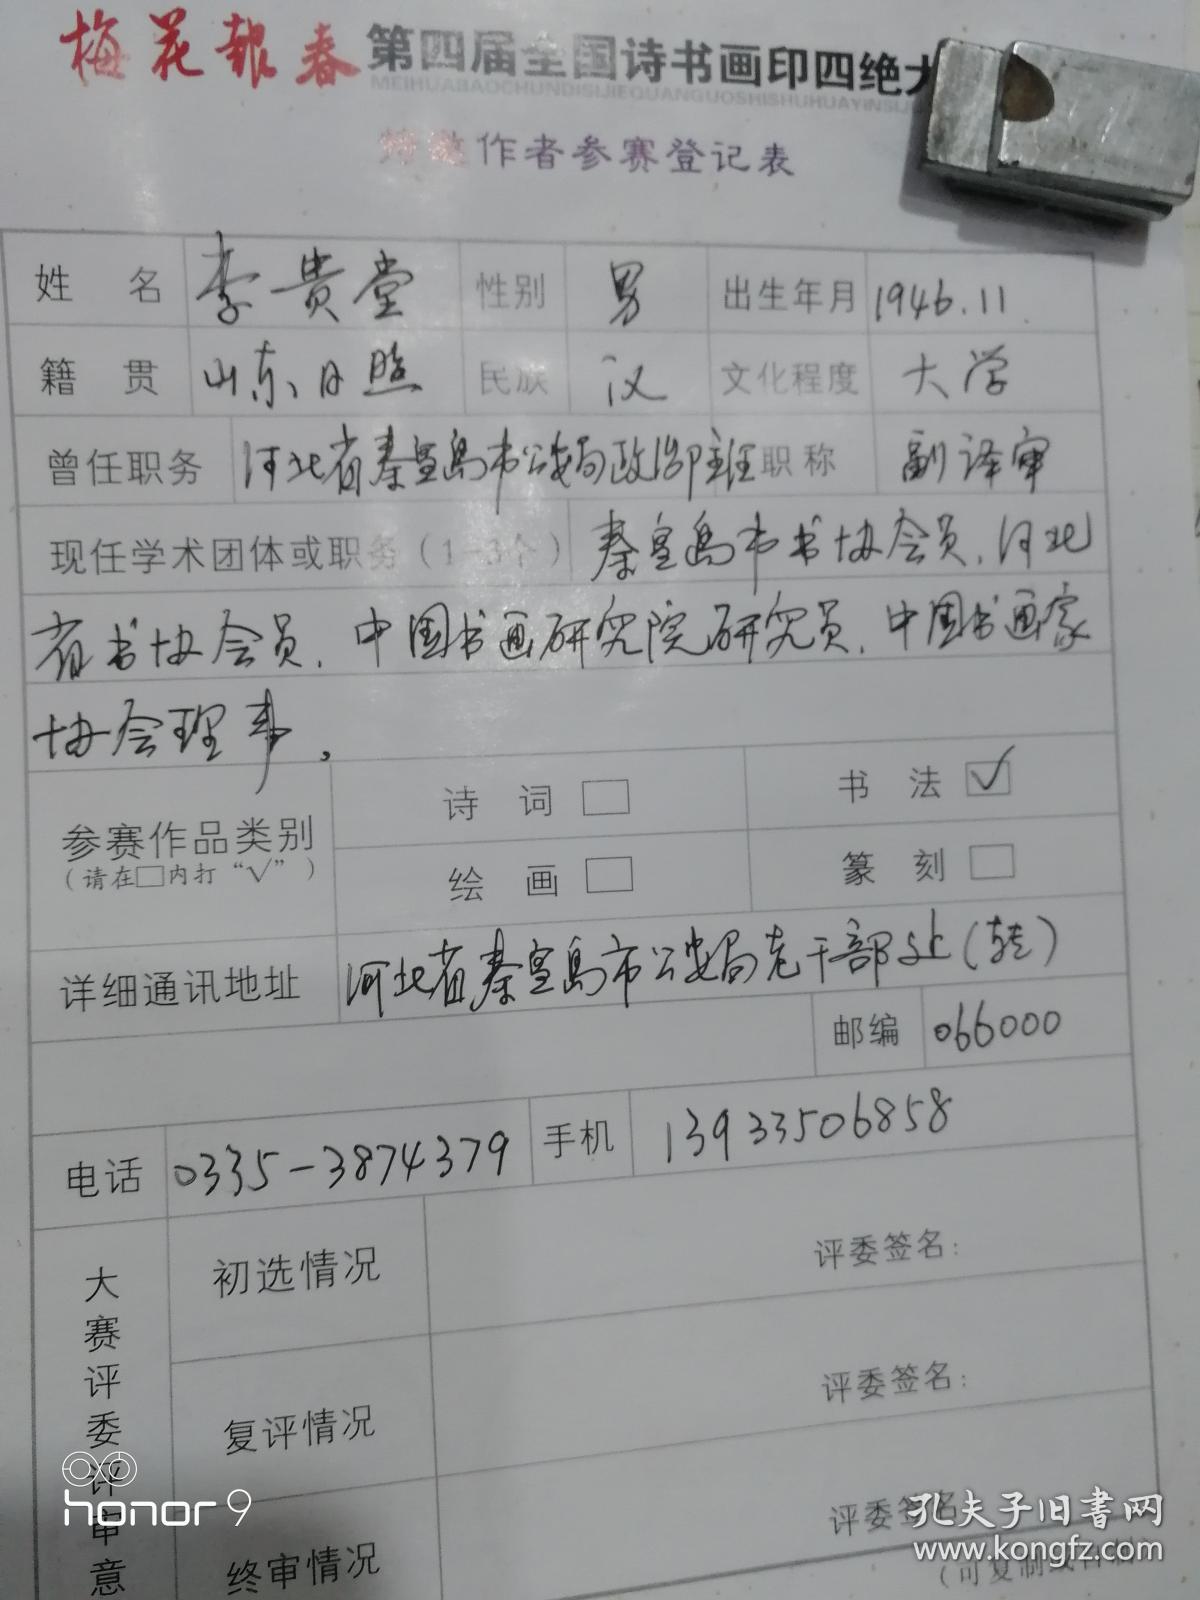 梅花報春 第四届全国诗书画印四绝大
MEIHUABAOCHUNDISIJIEQUANGUOSHISHUHUAYINSIJU
特邀作者参赛登记表
姓 名 李贵堂 性别 男 出生年月 1946.11
籍 贯 山东、日照 民族 汉 文化程度 大学
曾任职务 河北省秦皇岛市公安局政治部主任 职称 副译审
现任学术团体或职务（1-3个） 秦皇岛市书协会员、河北
省书协会员、中国书画研究院研究员、中国书画家
协会理事，
参赛作品类别 诗 词 □ 书 法 ☑
（请在□内打“√”） 绘 画 □ 篆 刻 □
详细通讯地址 河北省秦皇岛市公安局老干部处（转）
邮编 066000
电话 0335-3874379 手机 13933506858
大赛评委评审意
初选情况 评委签名：
复评情况 评委签名：
终审情况 评委签名
（可复制或
honor 9
孔夫子旧书网
www.kongfz.com